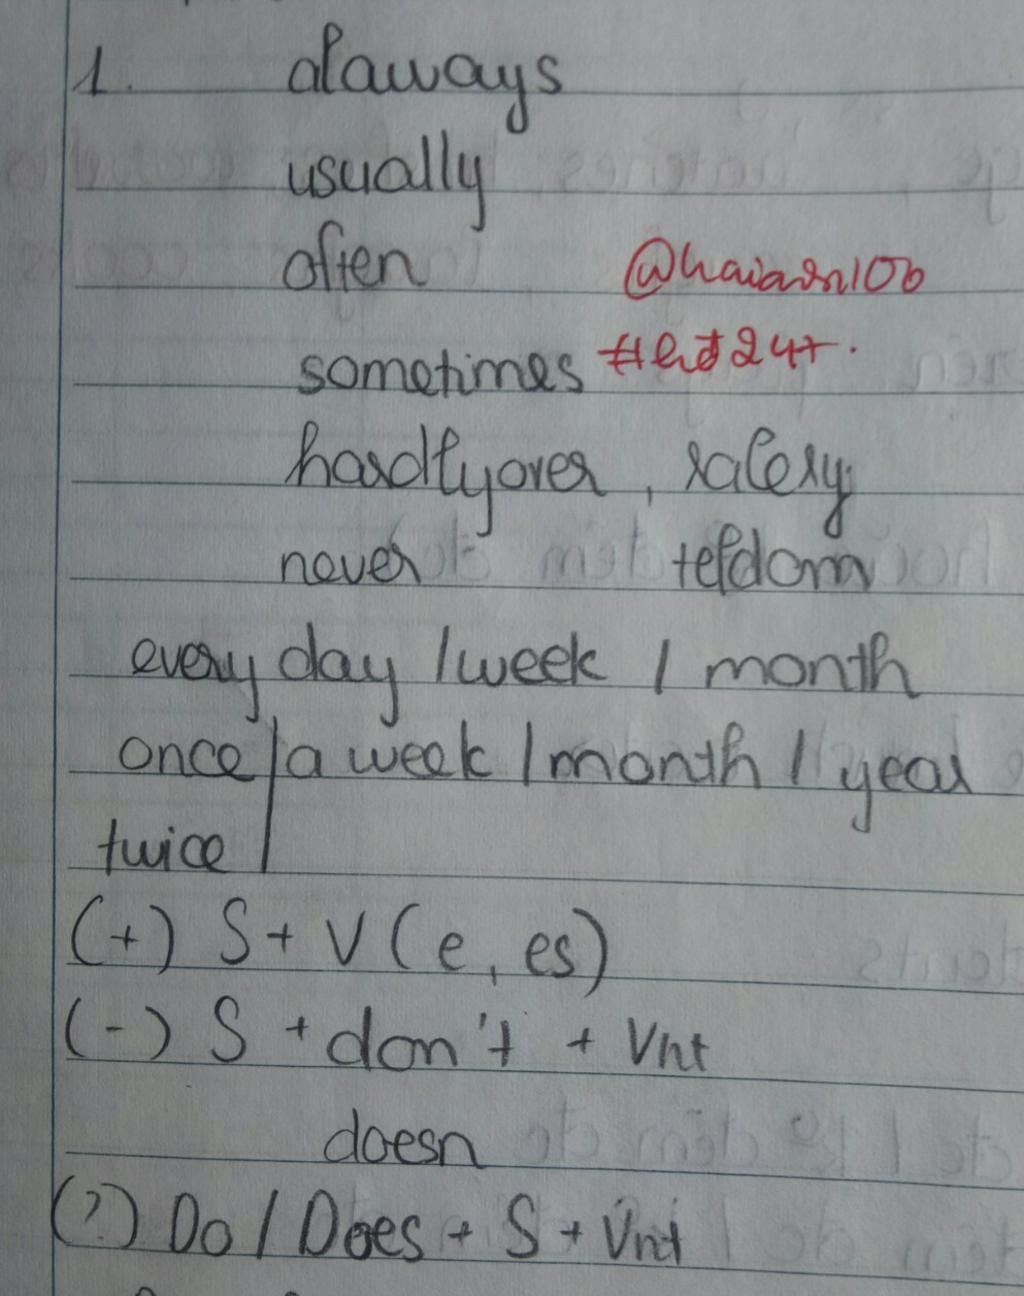 1. alaways
usually
often
@haiarn10b
sometimes #hd24+.
hardlyover, ralery
never teldom
every day / week / month
once / a week / month / year
twice /
(+) S + V (e, es)
(-) S + don't + Vnt
doesn
(?) Do / Does + S + Vnt